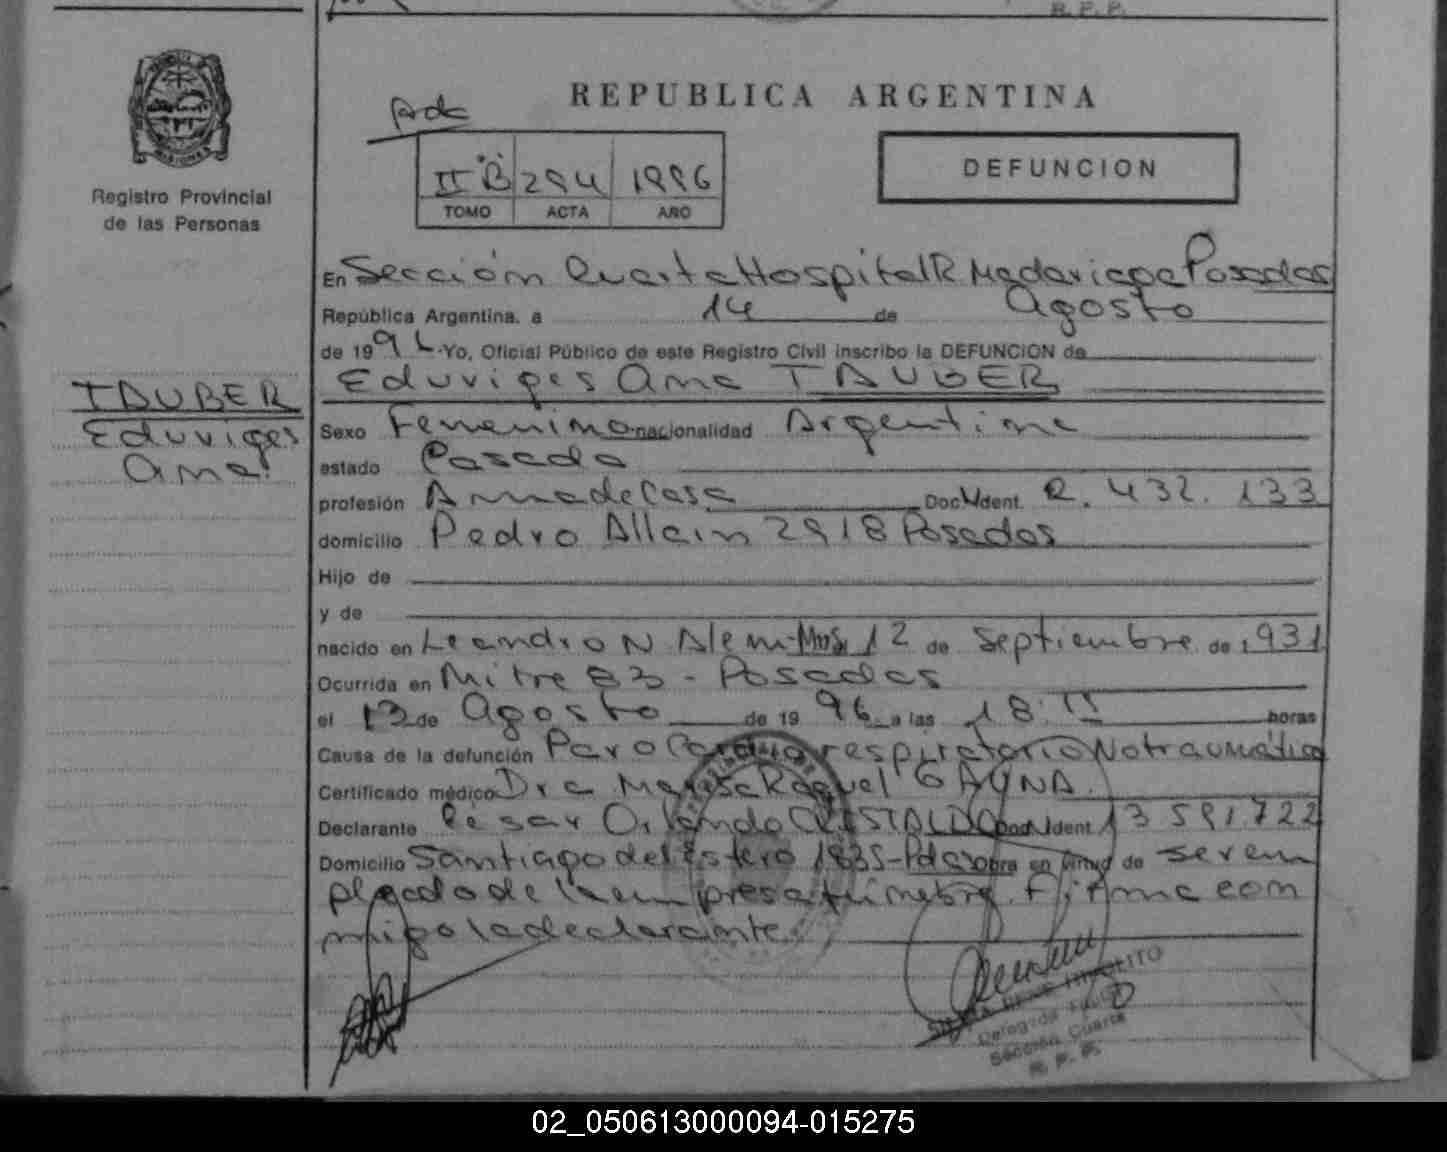 R. P. P.
Registro Provincial
de las Personas
REPUBLICA ARGENTINA
Pdc
II B 294 1996
TOMO ACTA AÑO
DEFUNCION
En Sección Cuarta Hospital R Madariaga Posadas
República Argentina. a 14 de Agosto
de 1996 Yo, Oficial Público de este Registro Civil inscribo la DEFUNCION de
Eduviges Ana TAUBER
TAUBER
Eduviges
Ana
Sexo Femenino nacionalidad Argentina
estado Casada
profesión Ama de Casa Doc Ident. 2.432.133
domicilio Pedro Allain 2918 Posadas
Hijo de
y de
nacido en Leandro N Alem-Mns 12 de Septiembre de 1931
Ocurrida en Mitre 83 - Posadas
el 13 de Agosto de 1996 a las 18:11 horas
Causa de la defunción Paro Cardiorespiratorio No traumático
Certificado médico Dra Marisa Raquel GAUNA.
Declarante Cesar Orlando CRISTALDO Doc Ident 13 591722
Domicilio Santiago del Estero 1835-Pdas obra en virtud de ser em
pleado de la empresa fúnebre. Firma con
migo la declarante.
HIPOLITO
Delegada
Sección Cuarta
R. P. P.
02_050613000094-015275